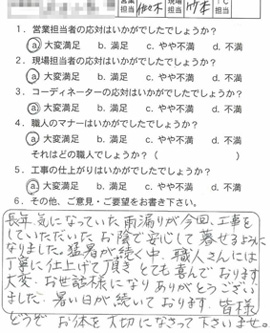 営業担当 佐々木 現場担当 竹本 TC担当
1．営業担当者の応対はいかがでしたでしょうか？
ⓐ大変満足 b. 満足 c. やや不満 d. 不満
2．現場担当者の応対はいかがでしたでしょうか？
ⓐ大変満足 b. 満足 c. やや不満 d. 不満
3．コーディネーターの応対はいかがでしたでしょうか？
ⓐ大変満足 b. 満足 c. やや不満 d. 不満
4．職人のマナーはいかがでしたでしょうか？
ⓐ大変満足 b. 満足 c. やや不満 d. 不満
それはどの職人でしょうか？（　　　　　）
5．工事の仕上がりはいかがでしたでしょうか？
ⓐ大変満足 b. 満足 c. やや不満 d. 不満
6．その他、ご意見・ご要望をお書き下さい。
長年気になっていた雨漏りが今回、工事を
していただいたお陰で安心して暮せるように
なりました。猛暑が続く中、職人さんには
丁寧に仕上げて頂きとても喜んでおります
大変、お世話様になりありがとうござい
ました。暑い日が続いております。皆様
どうぞ お体を大切になさって下さいませ